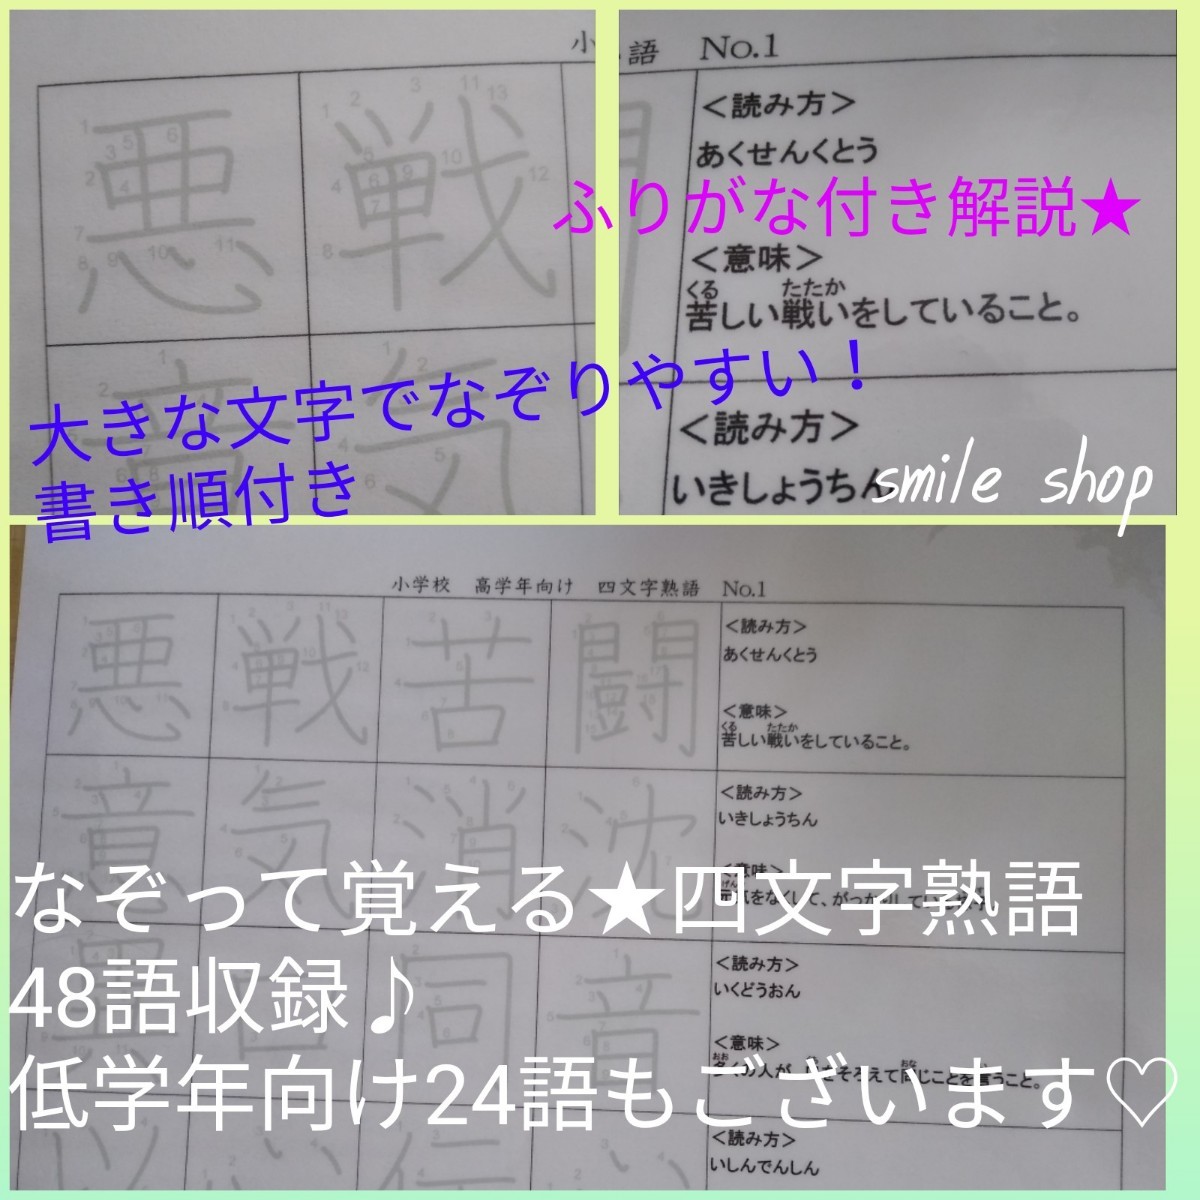 小
語 No.1
悪 戦
<読み方>
あくせんくとう
ふりがな付き解説★
<意味>
くる たたか
苦しい戦いをしていること。
意 気
大きな文字でなぞりやすい！
書き順付き
<読み方>
いきしょうちん
smile shop
小学校 高学年向け 四文字熟語 No.1
悪 戦 苦 闘
<読み方>
あくせんくとう
<意味>
くる たたか
苦しい戦いをしていること。
意 気 消 沈
<読み方>
いきしょうちん
<意味>
なぞって覚える★四文字熟語
48語収録♪
低学年向け24語もございます♡
異 口 同 音
<読み方>
いくどうおん
<意味>
以 心 伝 心
<読み方>
いしんでんしん